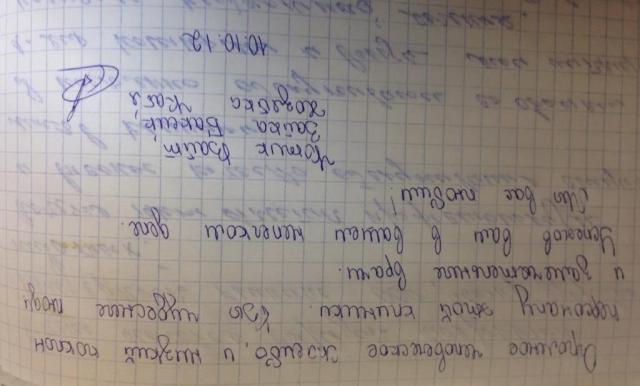 Огромное человеческое спасибо, и низкий поклон
персоналу этой клиники. Вы чудесные люди
и замечательные врачи.
Успехов вам в вашем нелегком деле.
Мы вас любим!
Котик Вайт
Зайка Баксик
Хозяйка Катя
10.10.12